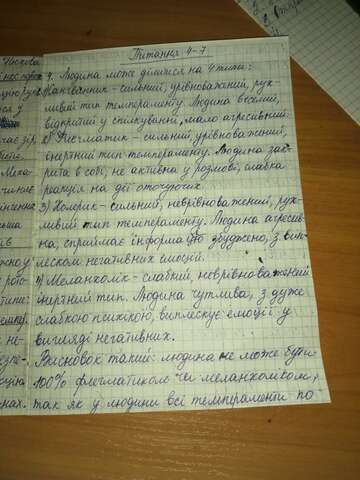 Питання 4-7
4. Людина може ділитися на 4 типи:
1) Сангвиник - сильний, урівноважений, рух-
ливий тип темпераменту. Людина веселий,
відкритий у спилкуванні, мало агресивний.
2) Флегматик - сильний, урівноважений,
інертний тип темпераменту. Людина зак-
рита в собі, не активна у розмові, слабка
реакція на дії оточуючих.
3) Холерик - сильний, неврівноважений, рух-
ливий тип темпераменту. Людина агресив-
на, сприймає інформацію збуджено, з вип-
леском негативних емоцій.
4) Меланхолік - слабкий, неврівноважений
інертний тип. Людина чутлива, з дуже
слабкою психікою, виплескує емоції у
вигляді негативних.
Висновок такий: людина не може бути
100% флегматиком чи меланхоликом,
так як у людини всі темпераменти по